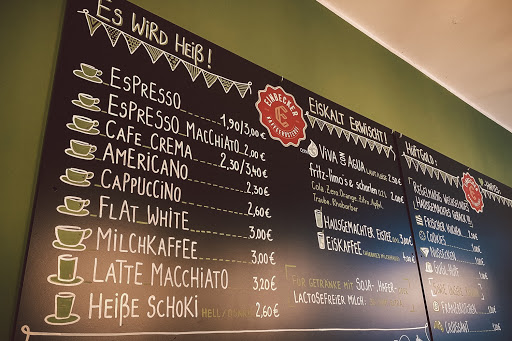 ES WiRD HEiß!
ESPRESSO 1,90/3,00€
ESPRESSO MACCHIATO 2,00€
CAFE CREMA 2,30/3,40€
AMERICANO 2,30€
CAPPUCCINO 2,60€
FLAT WHITE 3,00€
MiLCHKAFFEE 3,00€
LATTE MACCHIATO 3,20€
HEIßE SCHOKI HELL / 2,60€
EINBECKER
KAFFEERÖSTEREI
EiSKALT ERWiSCHT!
ViVA CON AGUA 2,50€
fritz-limo's & schorlen
Cola, Zitrone, Apfel,
Traube, Rhabarber
HAUSGEMACHTER EiSTEE 3,00€
EiSKAFFEE
FÜR GETRÄNKE MiT SOJA-, HAFER-
LACTOSEFREIER MiLCH:
HÜFTGOLD:
REGELMÄßiG WECHSELNDES
HAUSGEMACHTES GEBÄCK!
FRISCHER KUCHEN
COOKiES
CROiSSANT